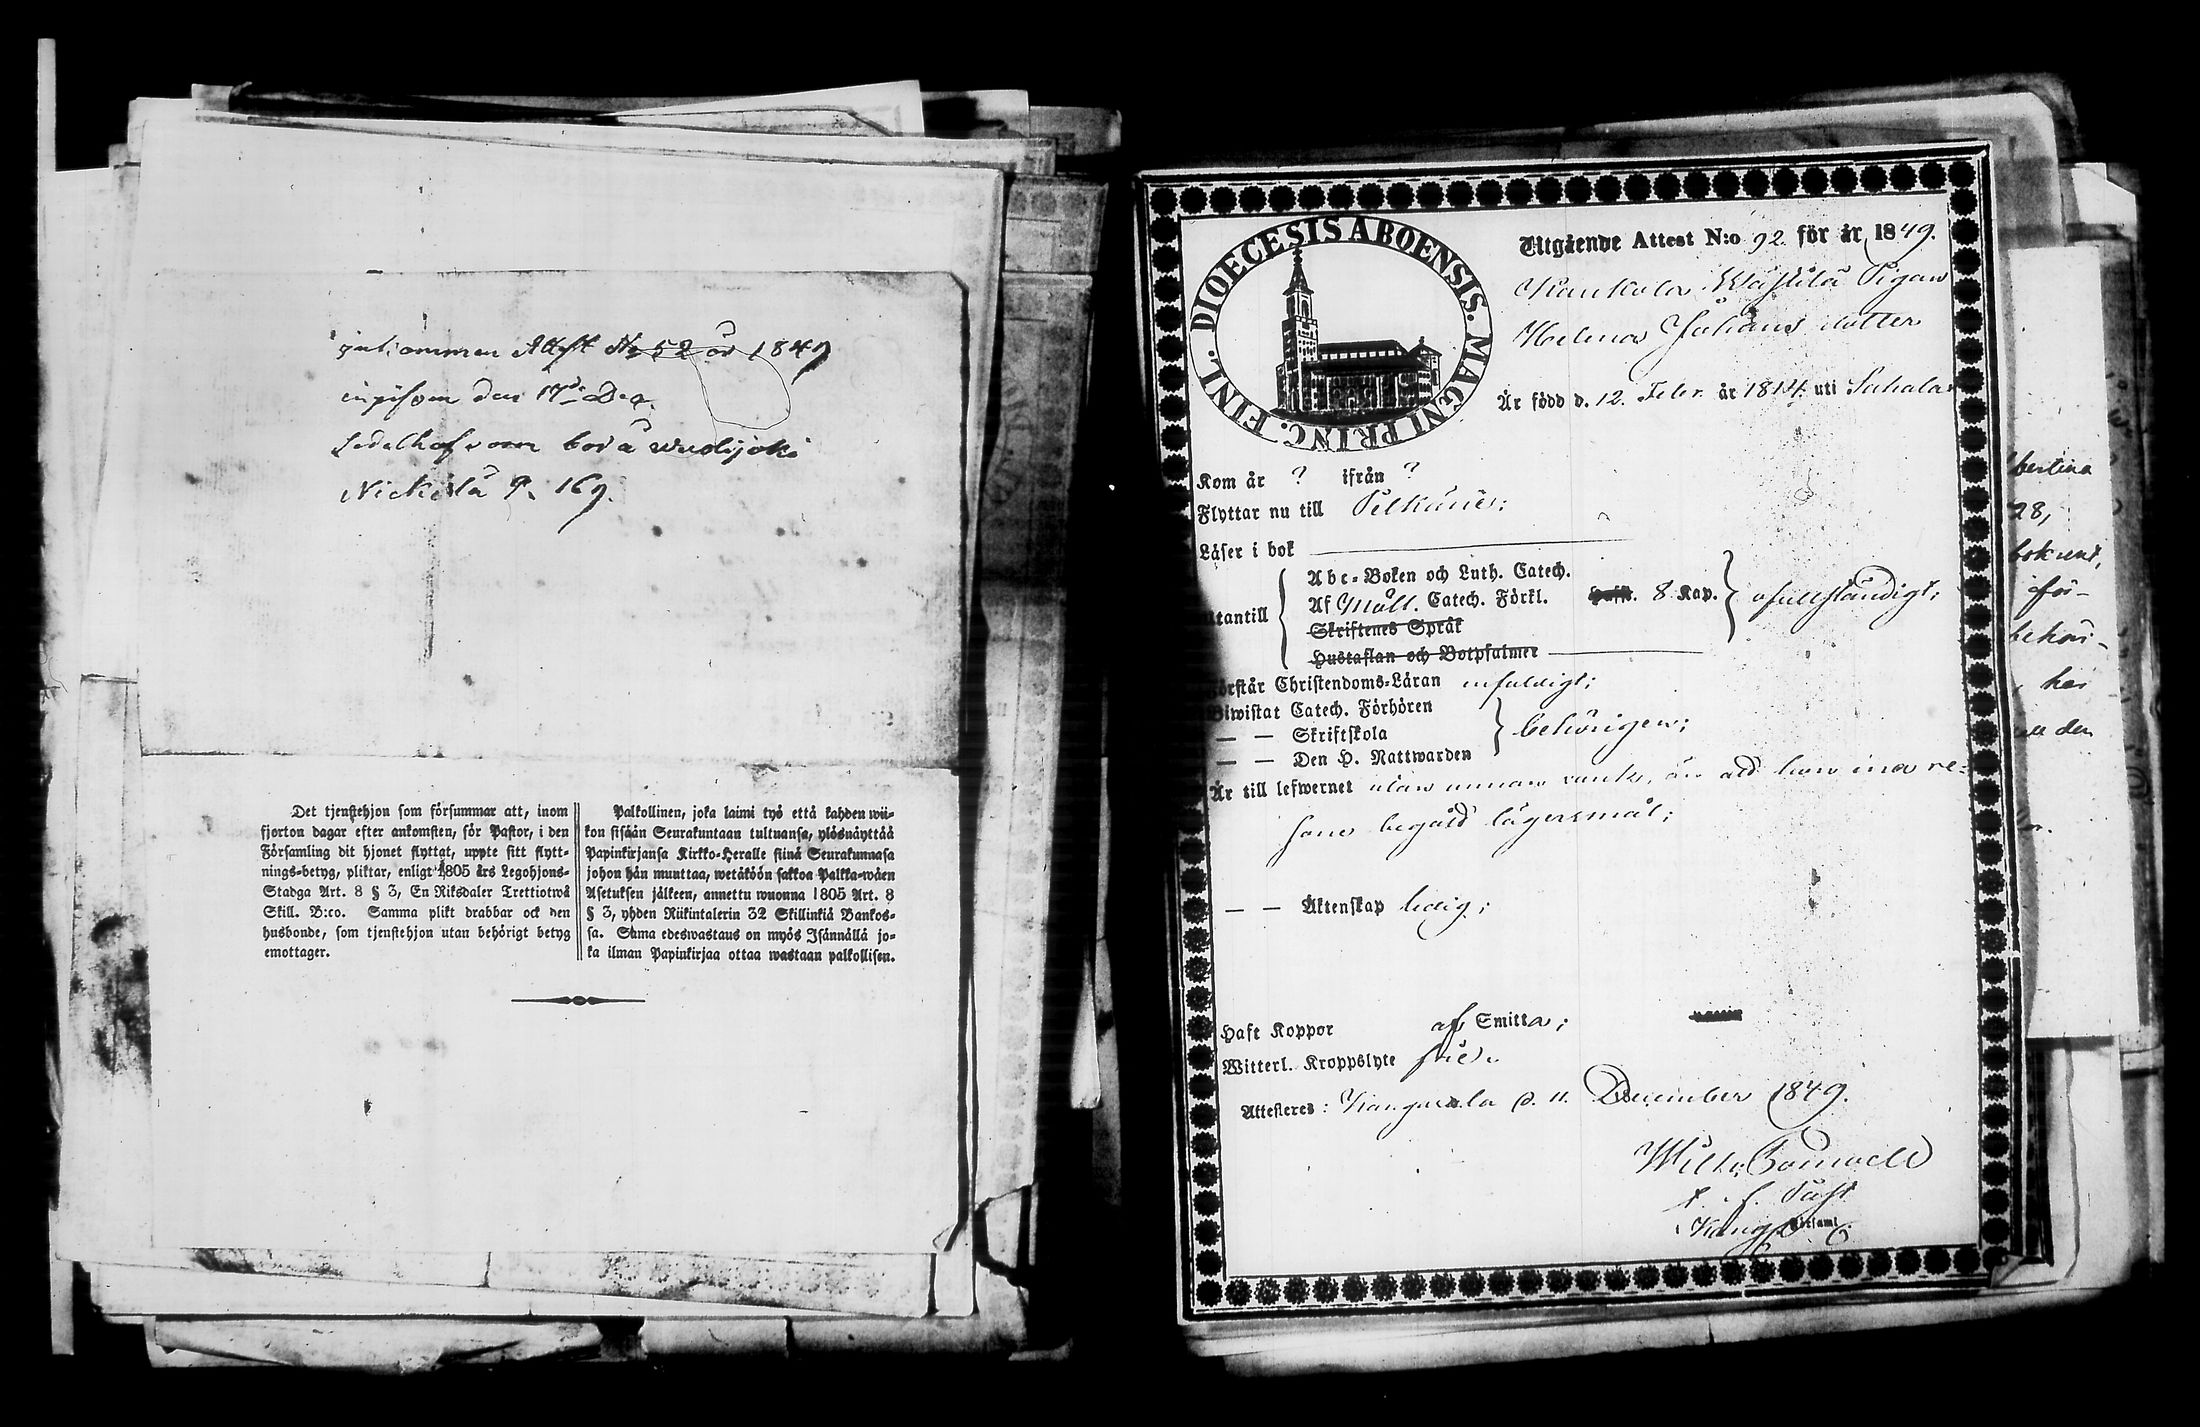 inkommen Attest No 52 år 1849
den 17de Dec.
bor å wuolijoki
Nickilä p. 169.
Det tjenstehjon som försummar att, inom
fjorton dagar efter ankomsten, för Pastor, i den
Församling dit hjonet flyttat, uppte sitt flytt-
nings-betyg, pliktar, enligt 1805 års Legohjons-
Stadga Art. 8 § 3, En Riksdaler Trettiotwå
Skill. B:co. Samma plikt drabbar ock den
husbonde, som tjenstehjon utan behörigt betyg
emottager.
Palkollinen, joka laimi lyö että kahden wii-
kon sisään Seurakuntaan tultuansa, ylösnäyttää
Papinkirjansa Kirkko-Heralle siinä Seurakunnasa
johon hän muuttaa, wetäköön sakkoa Palkka-wäen
Asetuksen jälkeen, annettu wuonna 1805 Art. 8
§ 3, yhden Riikintalerin 32 Skillinkiä Bankos-
sa. Sama edeswastaus on myös Isännällä jo-
ka ilman Papinkirjaa ottaa wastaan palkollisen.
DIOECESIS ABOENSIS. MAGNI PRINC. FINL.
Utgående Attest N:o 92 för år 1849.
Wästilä Pigan
Helena Johans dotter
Är född d. 12. Febr. år 1814. uti Sahalax
Kom år ? ifrån ?
Flyttar nu till Pelkäne;
Läser i bok
Abc-Boken och Luth. Catech.
Af Möll. Catech. Förkl. 8 Kap.
Utantill
Skriftenes Språk
Hustaflan och Botpsalmer
ofullständigt;
Förstår Christendoms-Läran enfaldigt;
Biwistat Catech. Förhören
— — Skriftskola
— — Den H. Nattwarden
behörigen;
Är till lefwernet utan annan än att hon ena re-
san begått lägersmål;
— — Äktenskap ledig;
Haft Koppor af Smitta;
Witterl. Kroppslyte fri.
Attesteras: Kangasala d. 11. December 1849.
Past
Kang. Församl.
bertina
28,
för-
behöri-
her
den